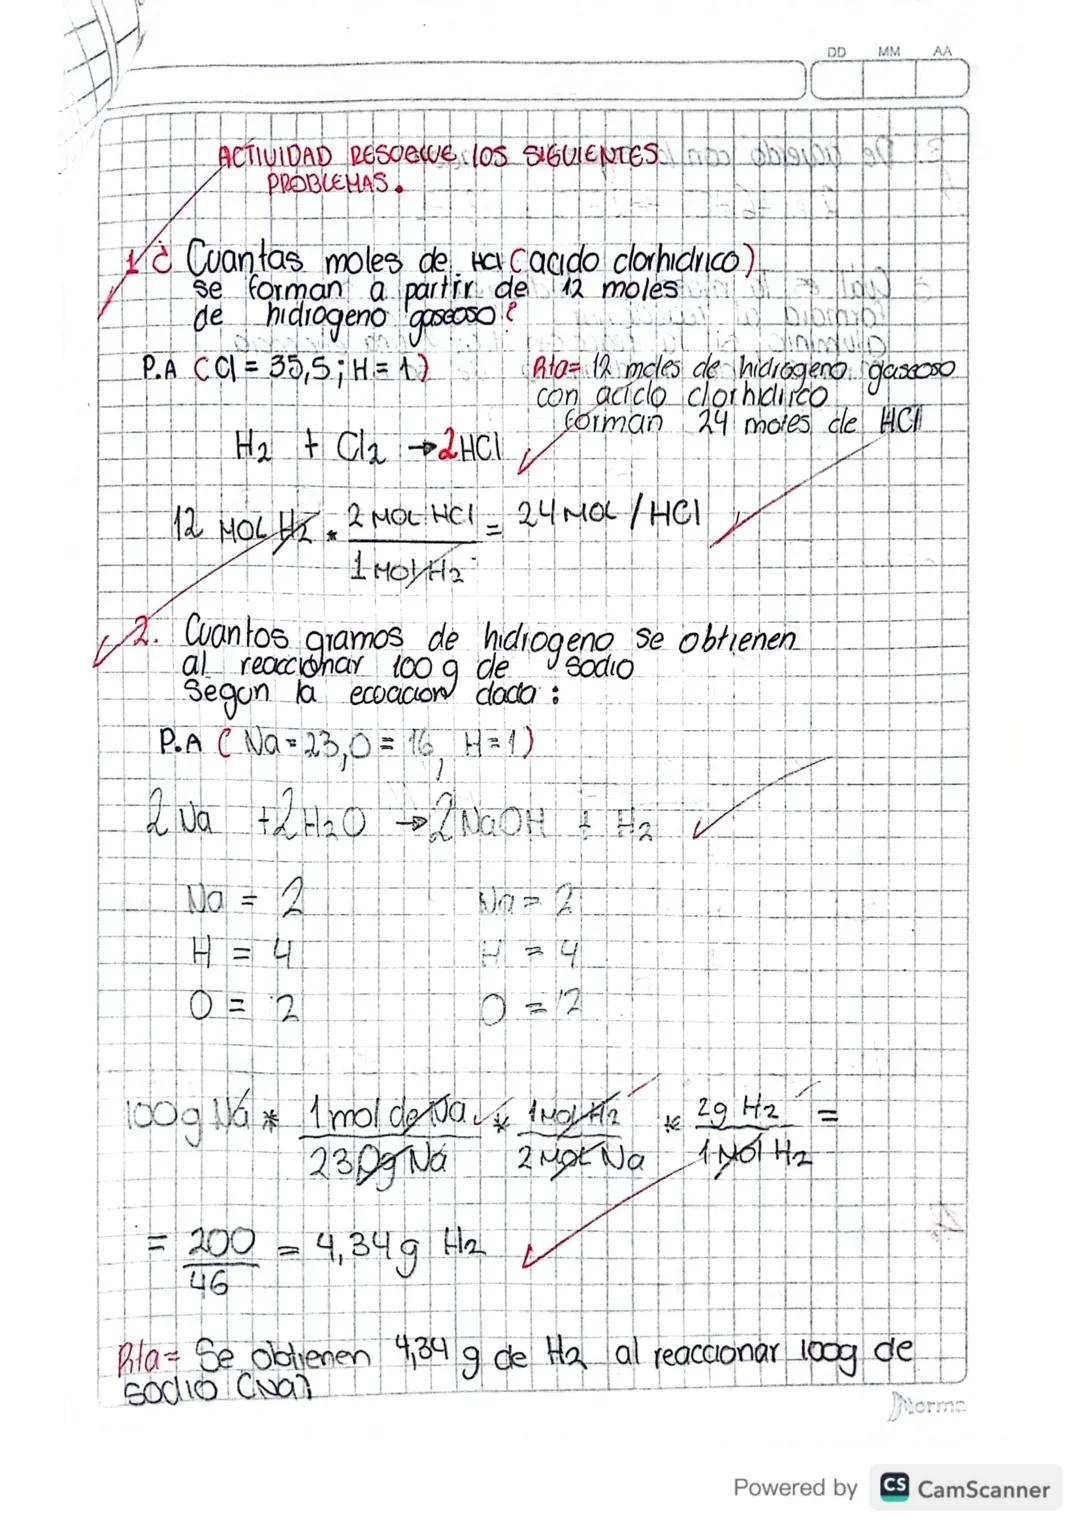 DD MM AA
ACTIVIDAD RESOELVE LOS SIGUIENTES
PROBLEMAS.
1 ¿ Cuantas moles de HCl (acido clorhidrico)
se forman a partir de 12 moles
de hidrogeno gaseoso?
P.A (Cl = 35,5; H = 1)
Rta= 12 moles de hidrogeno gaseoso
con acido clorhidirco
forman 24 moles de HCl
H2 + Cl2 → 2HCl
12 MOL H2 * 2 MOL HCl / 1 MOl H2 = 24 MOL / HCl
2. Cuantos gramos de hidrogeno se obtienen
al reaccionar 100 g de sodio
Segun la ecuacion dada :
P.A ( Na = 23, O = 16, H = 1)
2 Na + 2 H2O → 2 NaOH + H2
Na = 2 Na = 2
H = 4 H = 4
O = 2 O = 2
100g Na * 1 mol de Na / 23 g Na * 1 MOl H2 / 2 MOL Na * 2g H2 / 1 MOl H2 =
= 200 / 46 = 4,34 g H2
Rta= Se obtienen 4,34 g de H2 al reaccionar 100g de
sodio (Na)
Norma
Powered by CS CamScanner